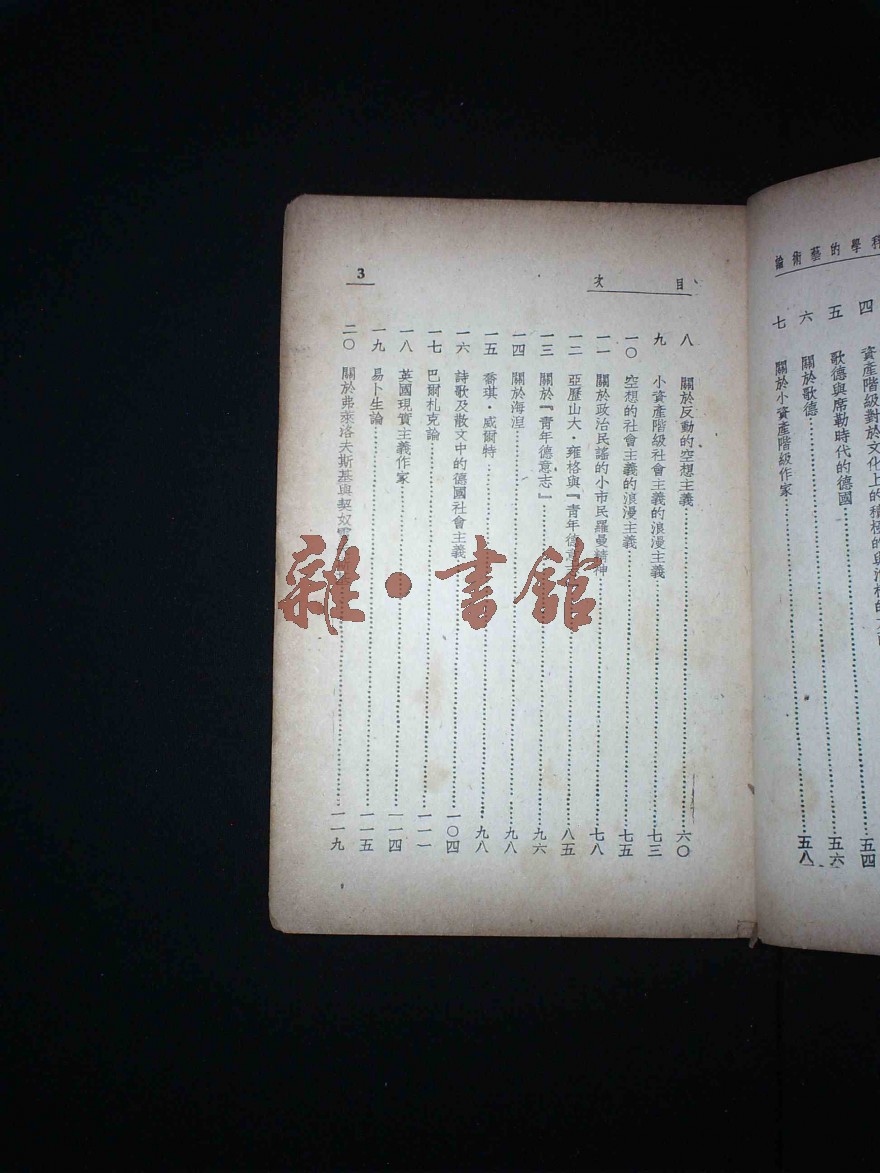 科學的藝術論
四 資產階級對於文化上的積極的與消極的 五四
五 歌德與席勒時代的德國 五六
六 關於歌德
七 關於小資產階級作家 五八
目次
3
八 關於反動的空想主義 六〇
九 小資產階級社會主義的浪漫主義 七三
一〇 空想的社會主義的浪漫主義 七五
一一 關於政治民謠的小市民羅曼精神 七八
一二 亞歷山大・雍格與『青年德意志』 八五
一三 關於『青年德意志』 九六
一四 關於海涅 九八
一五 喬琪・威爾特 九八
一六 詩歌及散文中的德國社會主義 一〇四
一七 巴爾札克論 一一一
一八 英國現實主義作家 一一四
一九 易卜生論 一一五
二〇 關於弗萊洛夫斯基與契奴 一一九
雜・書館